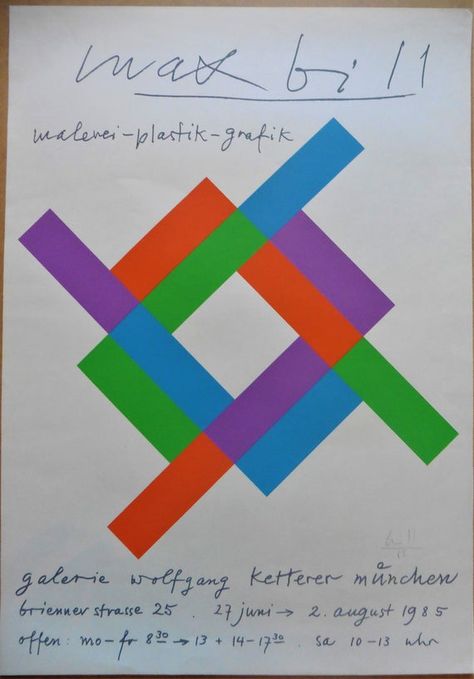 max bill
malerei-plastik-grafik
bill
galerie wolfgang ketterer münchen
brienner strasse 25 . 27 juni → 2. august 1985
offen: mo-fr 8³⁰ → 13 + 14-17³⁰ . sa 10-13 uhr